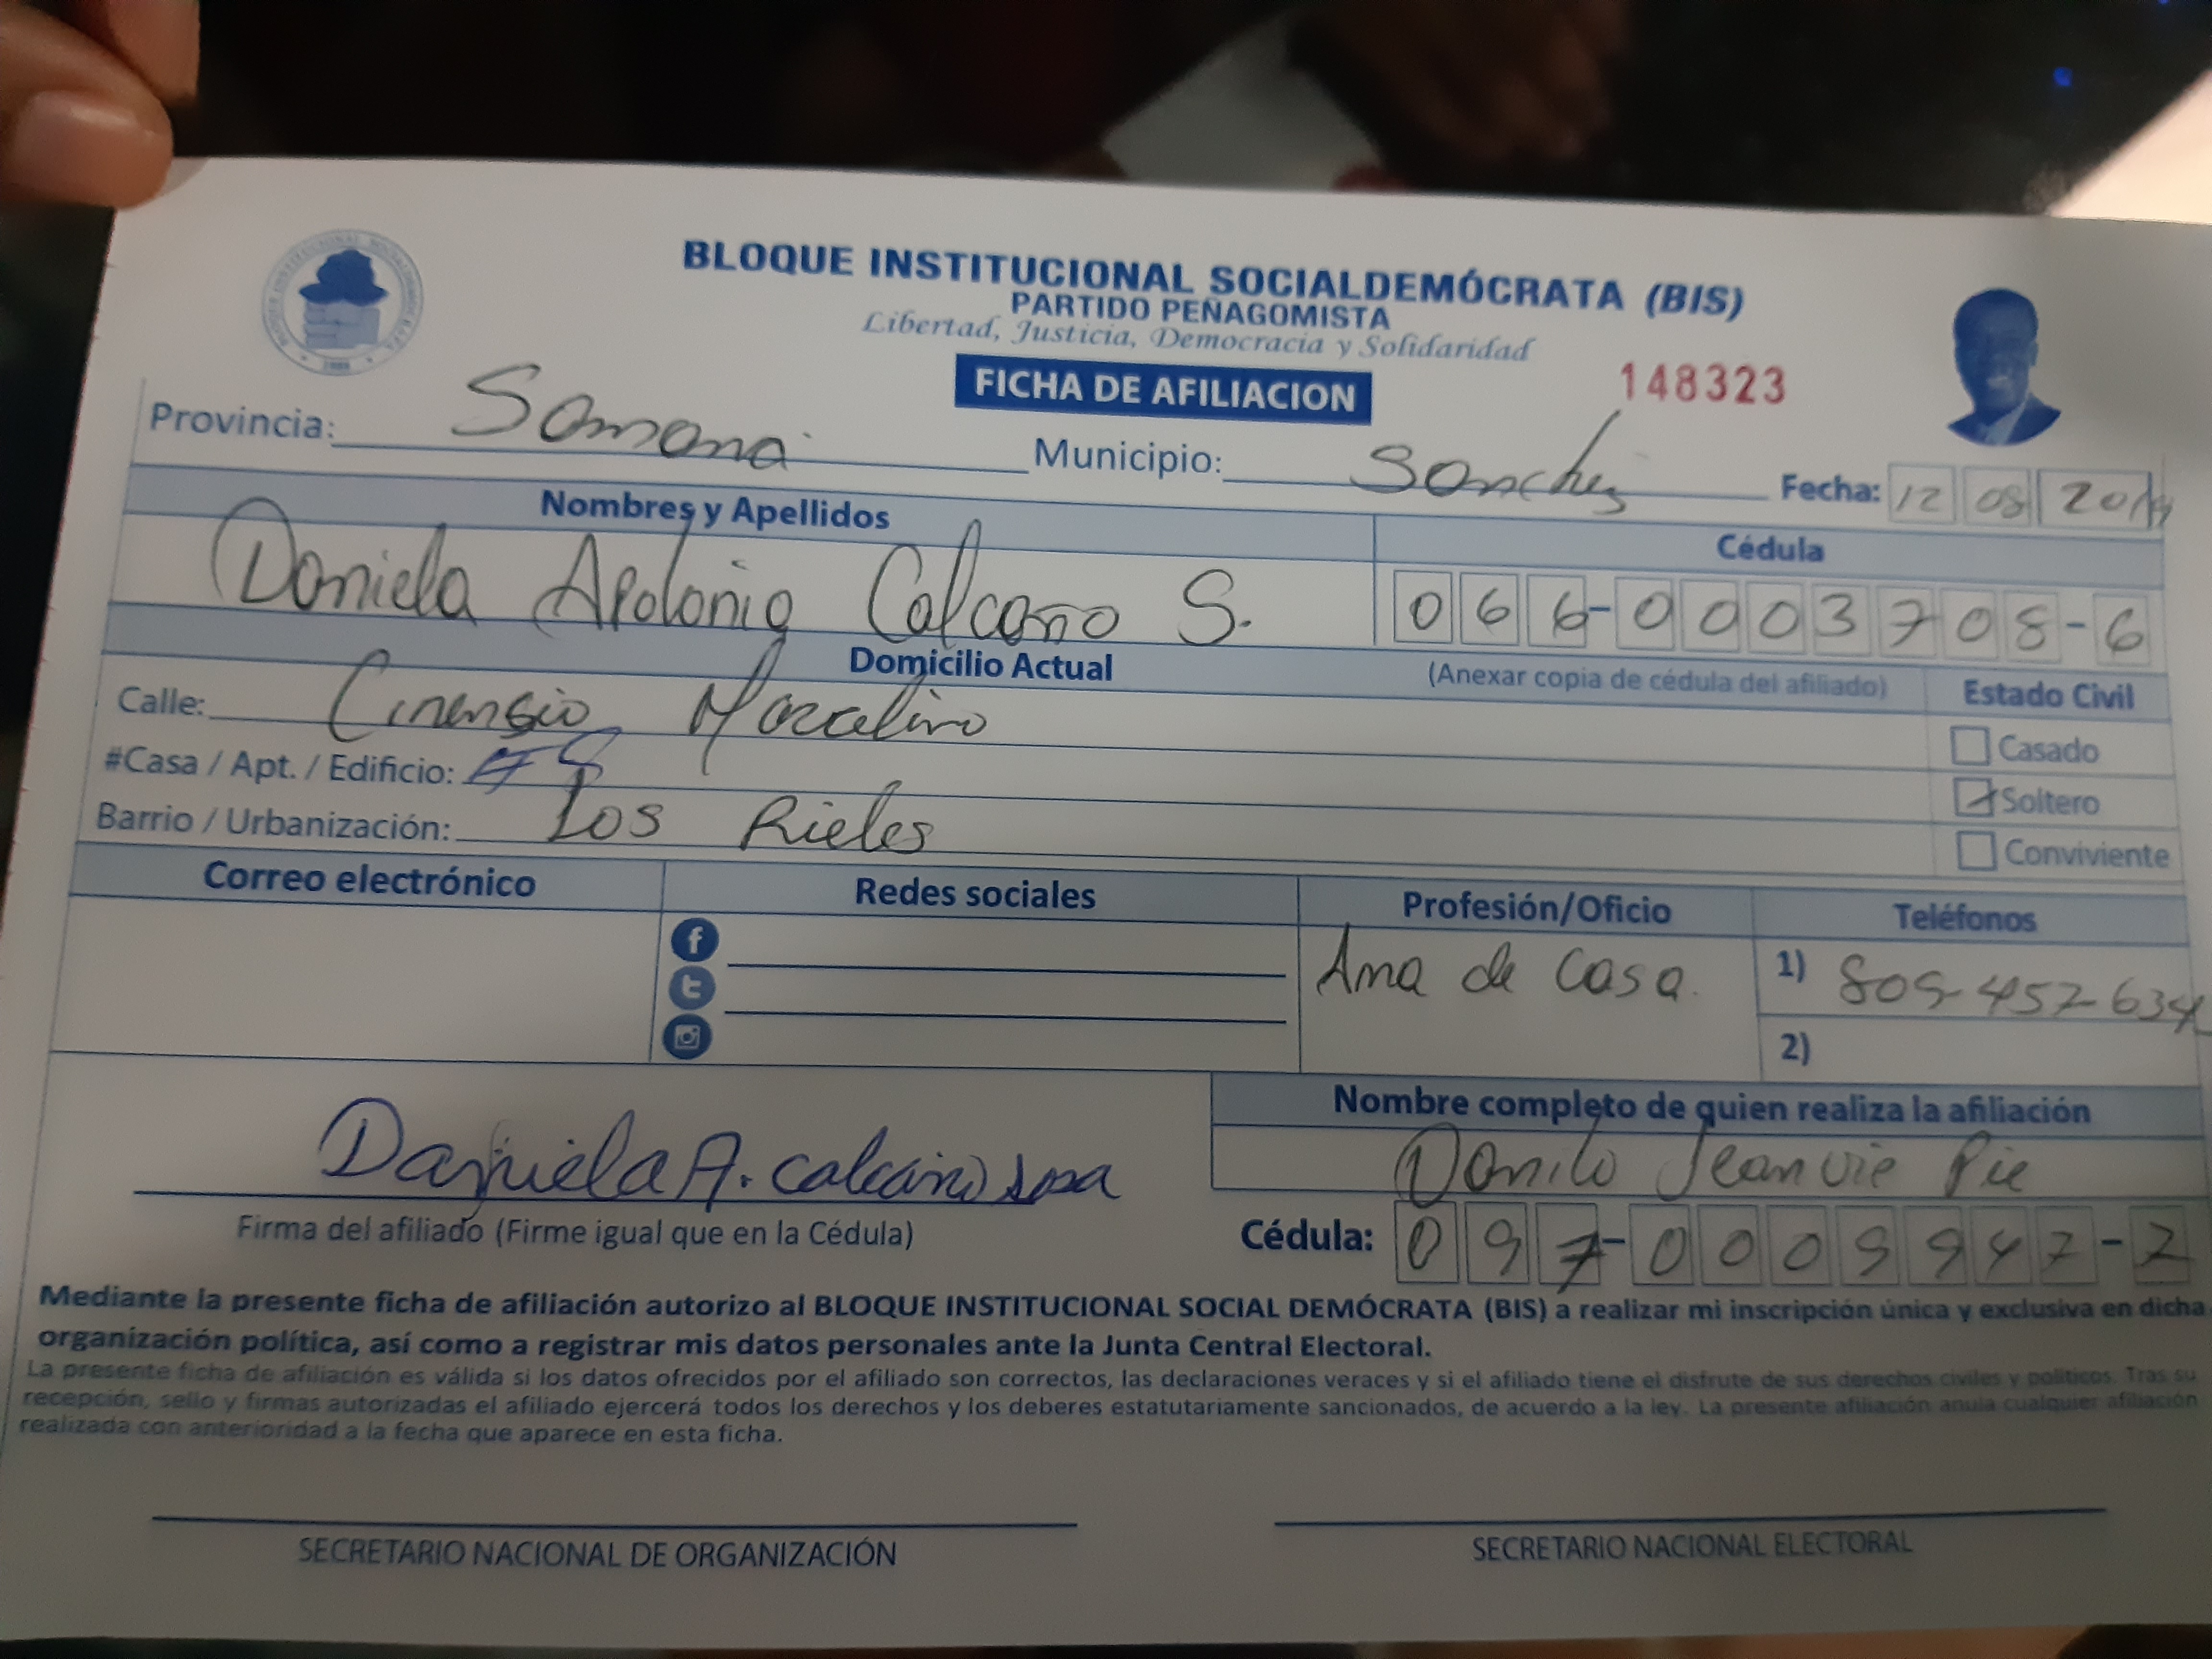 BLOQUE INSTITUCIONAL SOCIALDEMÓCRATA (BIS)
PARTIDO PEÑAGOMISTA
Libertad, Justicia, Democracia y Solidaridad
FICHA DE AFILIACION
148323
Provincia: Samaná Municipio: Sanchez Fecha: 12 08 2019
Nombres y Apellidos
Cédula
Daniela Apolonia Calcaño S.
066-0003708-6
Domicilio Actual
(Anexar copia de cédula del afiliado)
Estado Civil
Calle: Cinensio Marcelino
Casado
#Casa / Apt. / Edificio: #8
Soltero
Barrio / Urbanización: Los Rieles
Conviviente
Correo electrónico
Redes sociales
Profesión/Oficio
Teléfonos
Ama de Casa.
1) 809-457-634
2)
Nombre completo de quien realiza la afiliación
Danilo Jean vie Pie
Daniela A. calcaño sosa
Firma del afiliado (Firme igual que en la Cédula)
Cédula: 097-0009947-2
Mediante la presente ficha de afiliación autorizo al BLOQUE INSTITUCIONAL SOCIAL DEMÓCRATA (BIS) a realizar mi inscripción única y exclusiva en dicha
organización política, así como a registrar mis datos personales ante la Junta Central Electoral.
La presente ficha de afiliación es válida si los datos ofrecidos por el afiliado son correctos, las declaraciones veraces y si el afiliado tiene el disfrute de sus derechos civiles y políticos. Tras su
recepción, sello y firmas autorizadas el afiliado ejercerá todos los derechos y los deberes estatutariamente sancionados, de acuerdo a la ley. La presente afiliación anula cualquier afiliación
realizada con anterioridad a la fecha que aparece en esta ficha.
SECRETARIO NACIONAL DE ORGANIZACIÓN
SECRETARIO NACIONAL ELECTORAL